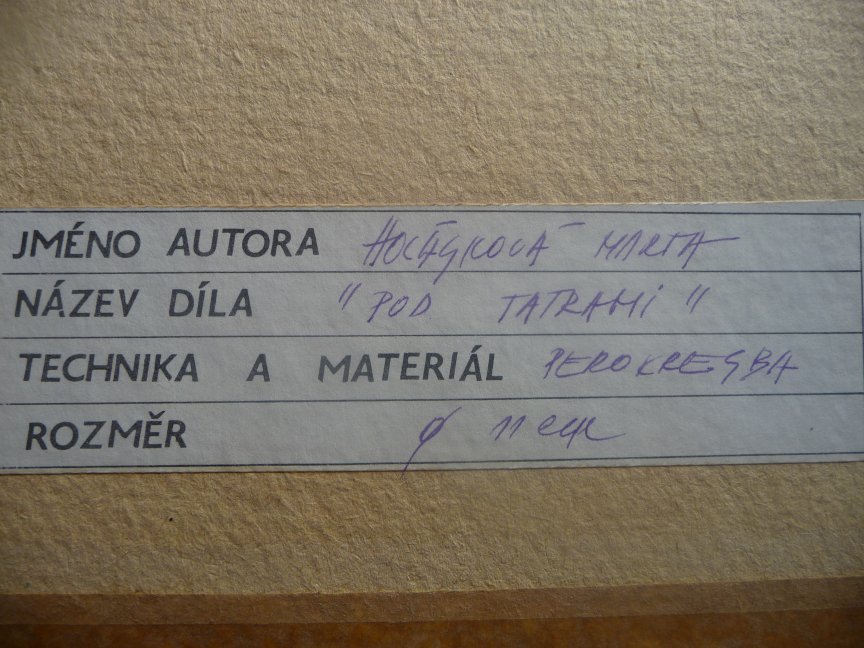 JMÉNO AUTORA MARTA
NÁZEV DÍLA "POD TATRAMI"
TECHNIKA A MATERIÁL PEROKRESBA
ROZMĚR ø 11 cm